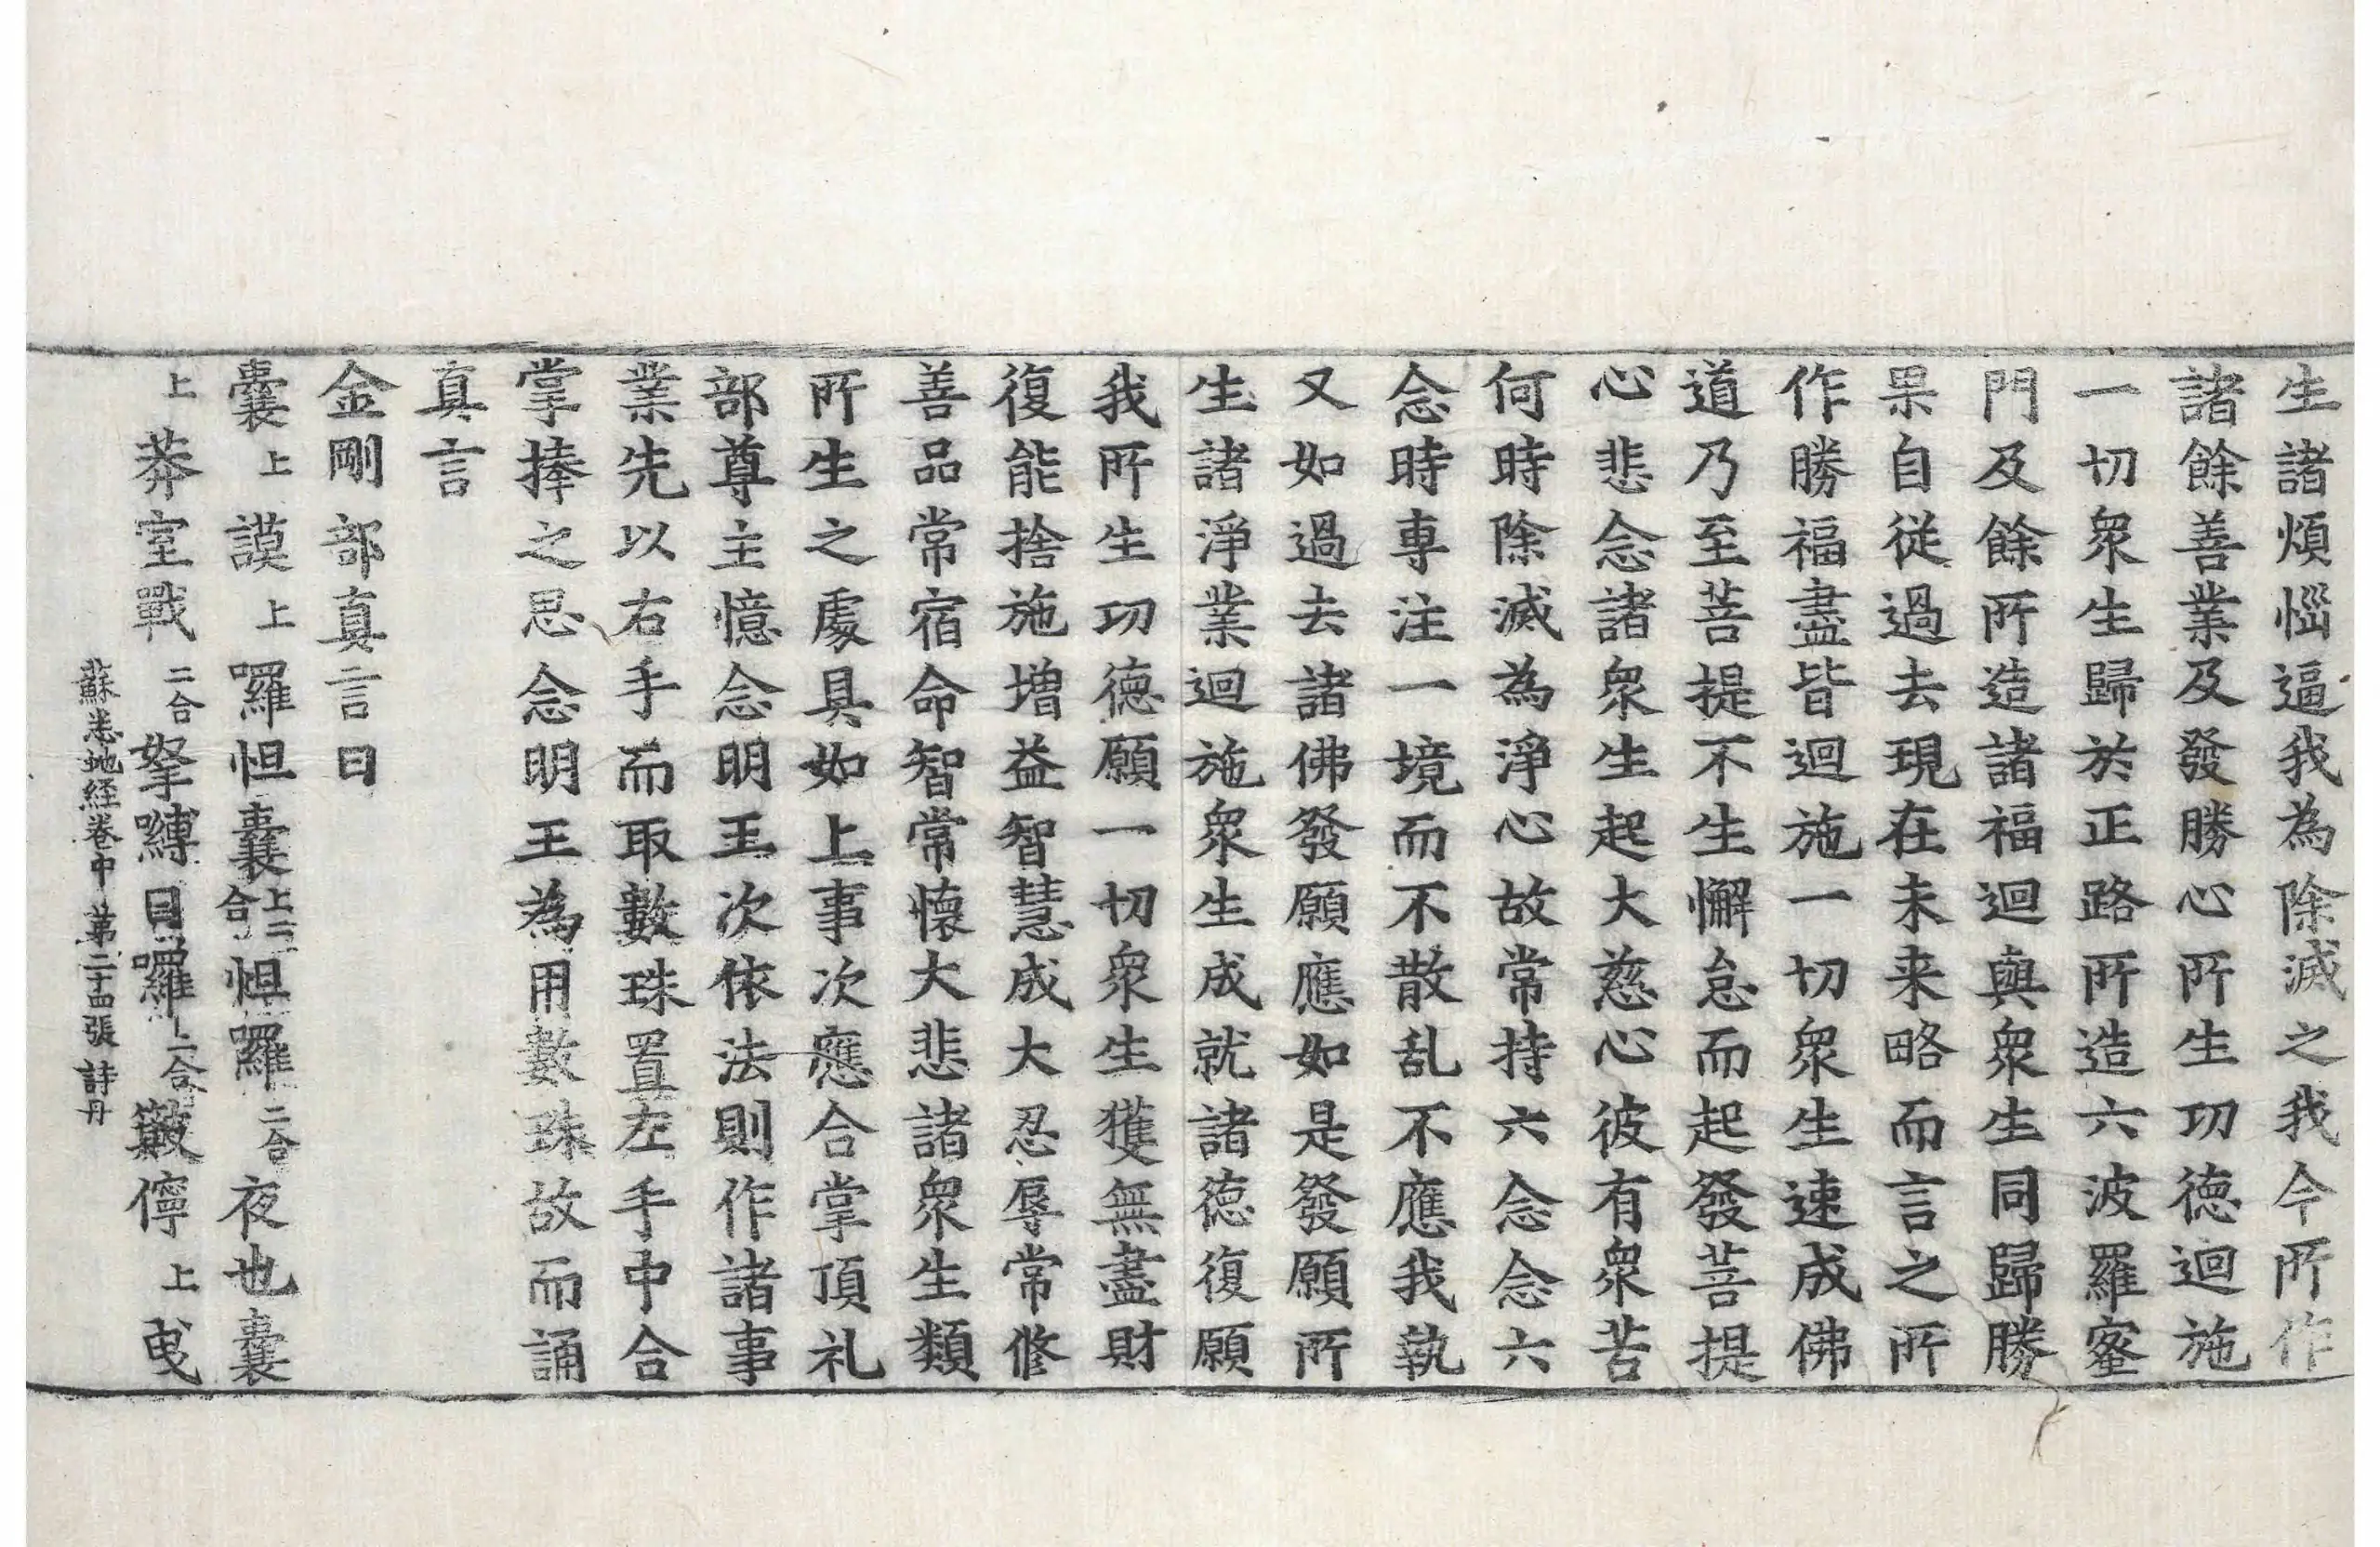 生諸煩惱逼我為除滅之我今所作
諸餘善業及發勝心所生功德迴施
一切眾生歸於正路所造六波羅蜜
門及餘所造諸福迴與眾生同歸勝
果自從過去現在未来略而言之所
作勝福盡皆迴施一切眾生速成佛
道乃至菩提不生懈怠而起發菩提
心悲念諸眾生起大慈心彼有眾苦
何時除滅為淨心故常持六念念六
念時專注一境而不散乱不應我執
又如過去諸佛發願應如是發願所
生諸淨業迴施眾生成就諸德復願
我所生功德願一切眾生獲無盡財
復能捨施增益智慧成大忍辱常修
善品常宿命智常懷大悲諸眾生類
所生之處具如上事次應合掌頂礼
部尊主憶念明王次依法則作諸事
業先以右手而取數珠置左手中合
掌捧之思念明王為用數珠故而誦
真言
金剛部真言曰
囊上謨上囉怛囊上二合怛囉二合夜也囊
上莽室戰二合拏嚩日囉二合簸儜上曳
蘇悉地経卷中 第二十四張 詩丹